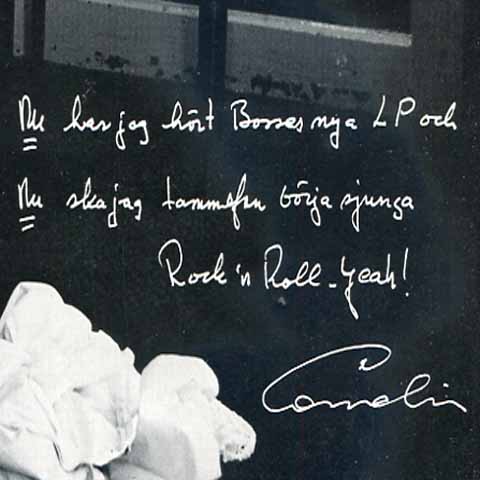 Nu har jag hört Bosses nya LP och
Nu ska jag tammefan börja sjunga
Rock'n Roll - Yeah!
Cornelis